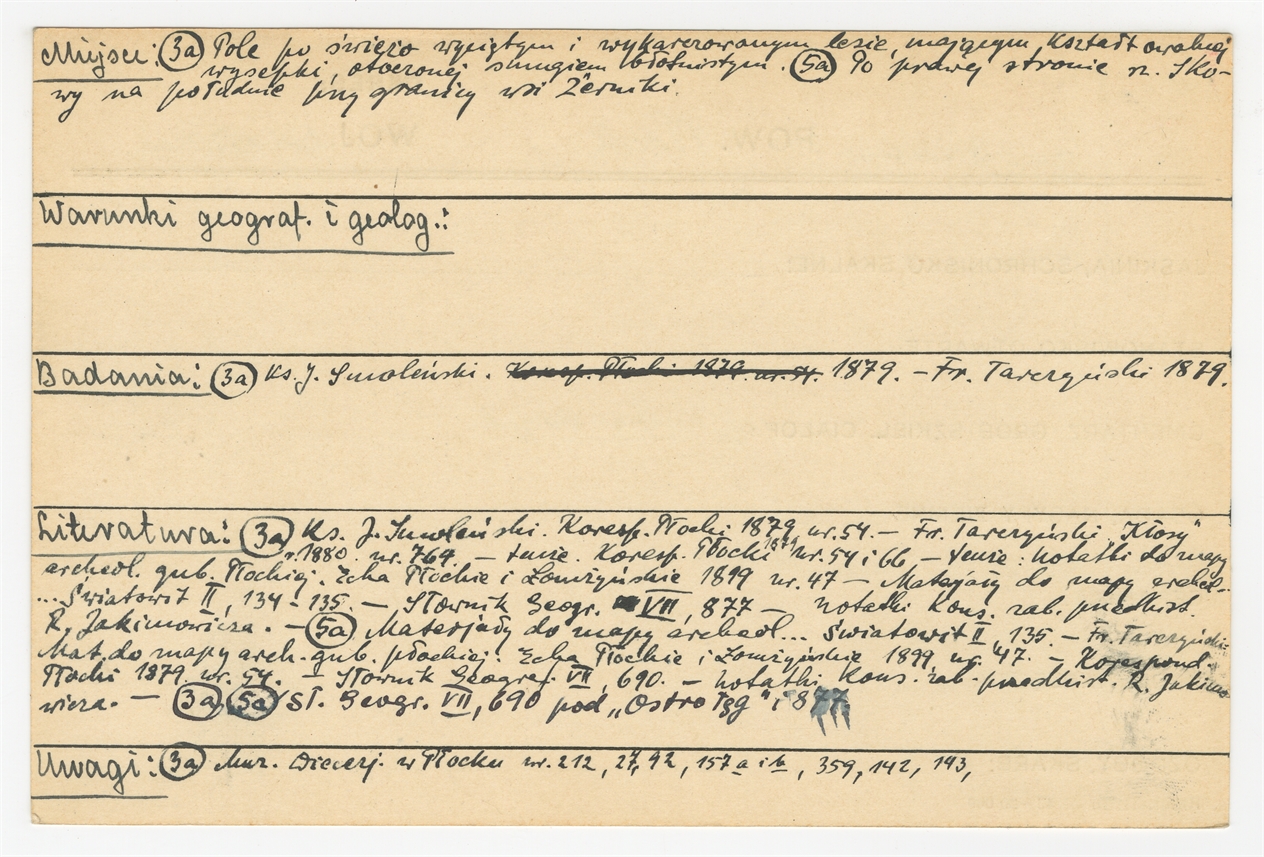 Miejsce: (3a) Pole po świeżo wyciętym i wykarczowanym lesie, mającym kształt owalnej
wysepki, otoczonej smugiem błotnistym. (5a) Po prawej stronie rz. Sko-
wy na południe przy granicy wsi Żerniki.
Warunki geograf. i geolog.:
Badania: (3a) Ks. J. Smoleński. Koresp. Płocki 1879. nr. 54. 1879. – Fr. Tarczyński 1879.
Literatura: (3a) Ks. J. Smoleński. Koresp. Płocki 1879 nr. 54. – Fr. Tarczyński „Kłosy"
r. 1880. nr. 764. – tenże. Koresp. Płocki 1879 nr. 54 i 66 – tenże: Notatki do mapy
archeol. gub. Płockiej. Echa Płockie i Łomżyńskie 1899 nr. 47 – Materjały do mapy archeol...
... Światowit II, 134-135. – Słownik Geogr. VII, 877 – Notatki Kons. zab. predhist.
R. Jakimowicza. – (5a) Materjały do mapy archeol... Światowit II, 135 – Fr. Tarczyński:
Mat. do mapy arch. gub. płockiej. Echa Płockie i Łomżyńskie 1899, nr. 47. – Korespond.
Płocki 1879. nr. 54. – Słownik Geograf. VII, 690. – Notatki Kons. zab. predhist. R. Jakimo-
wicza. – (3a) (5a) Sł. Geogr. VII, 690 pod „Ostrołęg", i 877
Uwagi: (3a) Muz. Diecezj. w Płocku nr. 212, 27, 92, 157 a i b, 359, 142, 143,